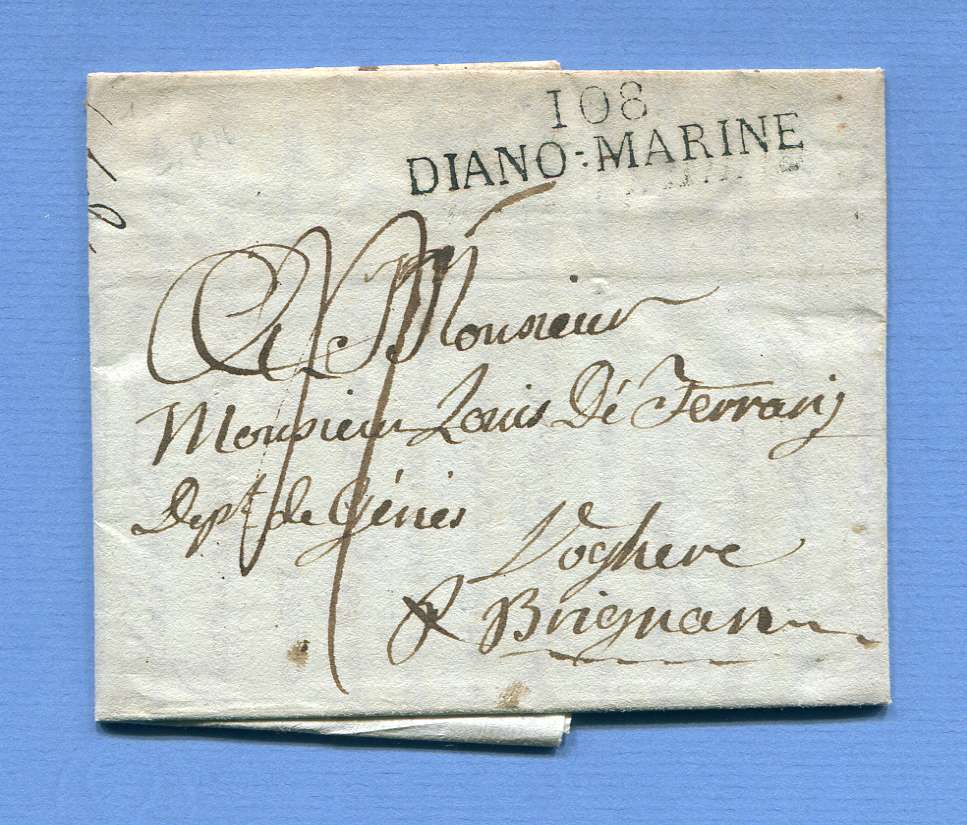 108
DIANO-MARINE
A Monsieur
Monsieur Louis Dé Ferrarij
Dept de Génes
Voghere
Brignan